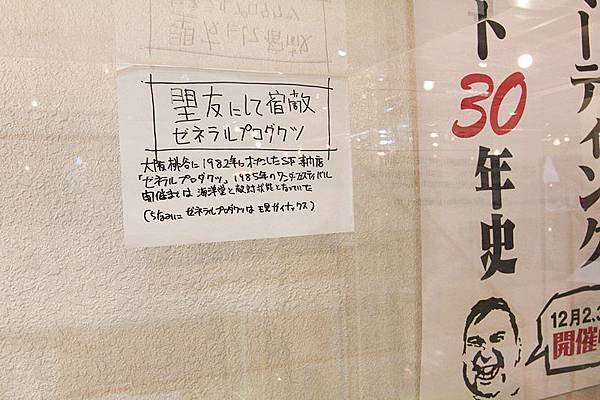 盟友にして宿敵
ゼネラルプロダクツ
大阪桃谷に1982年にオープンしたSF専門店
「ゼネラルプロダクツ」。1985年のワンダーフェスティバル
開催までは海洋堂と敵対状態となっていた
(ちなみにゼネラルプロダクツは現ガイナックス)
ーティング
ト30年史
12月2.3
開催